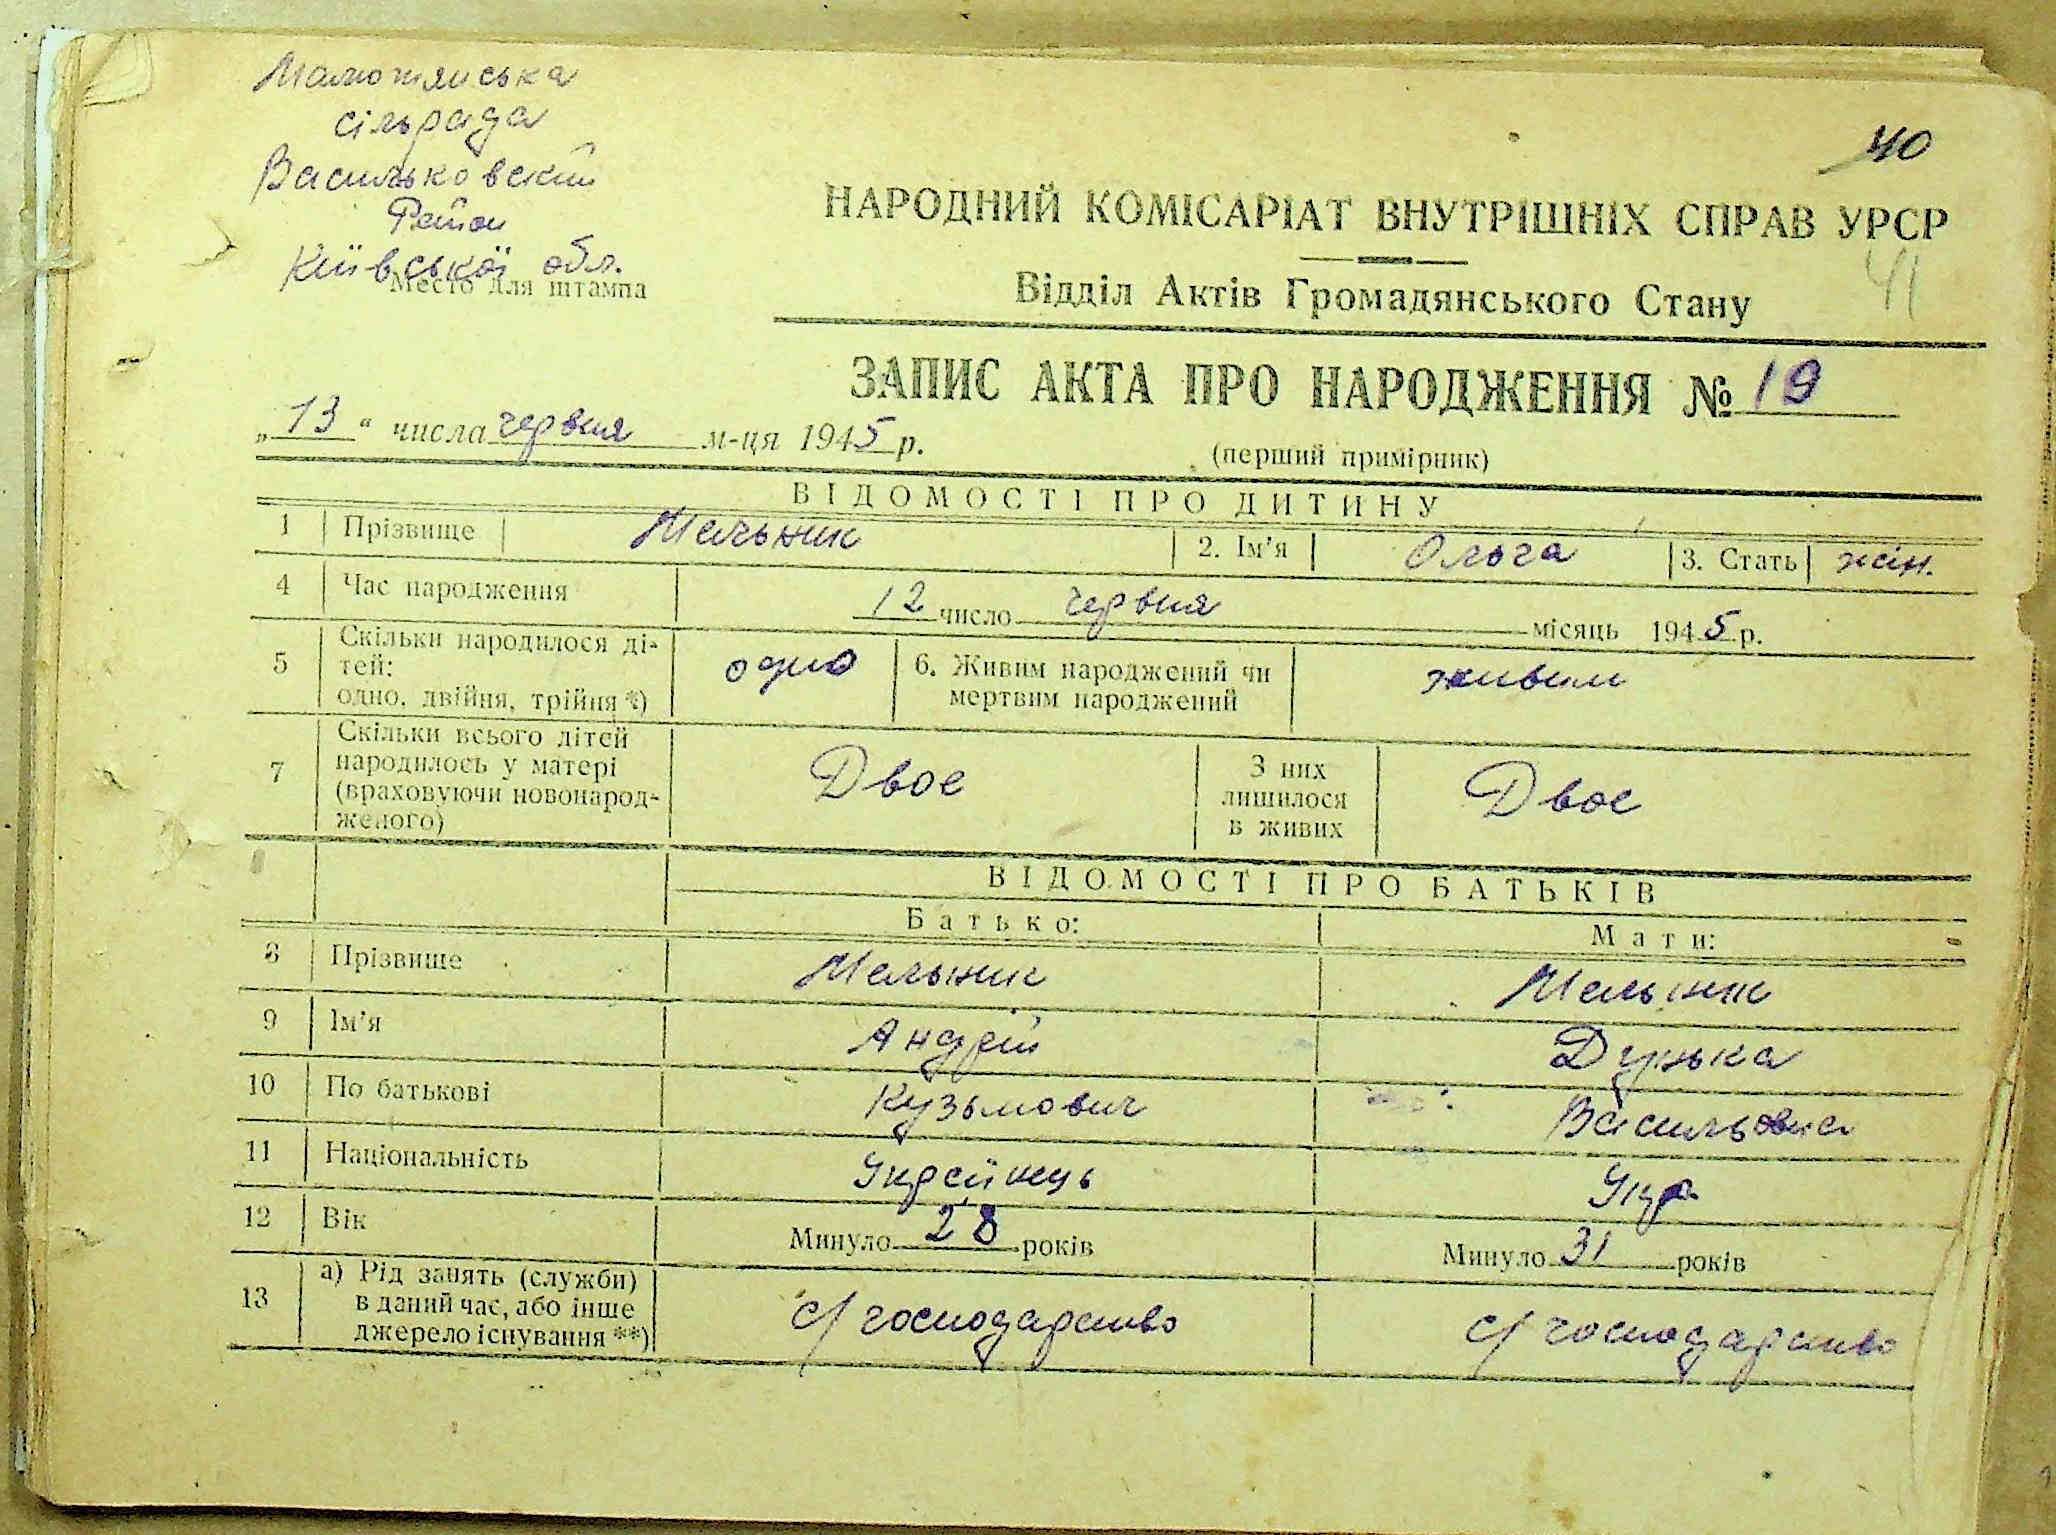 Малютянська
сільрада
Васильковский
Район
Київської обл.
Место для штампа
40
НАРОДНИЙ КОМІСАРІАТ ВНУТРІШНІХ СПРАВ УРСР
41
Відділ Актів Громадянського Стану
ЗАПИС АКТА ПРО НАРОДЖЕННЯ № 19
„13“ числа червня м-ця 1945 р.
(перший примірник)
ВІДОМОСТІ ПРО ДИТИНУ
1 Прізвище Мельник 2. Ім’я Ольга 3. Стать жін.
4 Час народження 12 число червня місяць 1945 р.
5 Скільки народилося ді-
тей:
одно, двійня, трійня *) одно 6. Живим народжений чи
мертвим народжений живим
7 Скільки всього дітей
народилось у матері
(враховуючи новонарод-
женого) Двое З них
лишилося
в живих Двое
ВІДОМОСТІ ПРО БАТЬКІВ
Батько: Мати:
8 Прізвище Мельник Мельник
9 Ім’я Андрій Дунька
10 По батькові Кузьмович Васильовна
11 Національність Українець Укр
12 Вік Минуло 28 років Минуло 31 років
13 а) Рід занять (служби)
в даний час, або інше
джерело існування **) с/господарство с/господарство